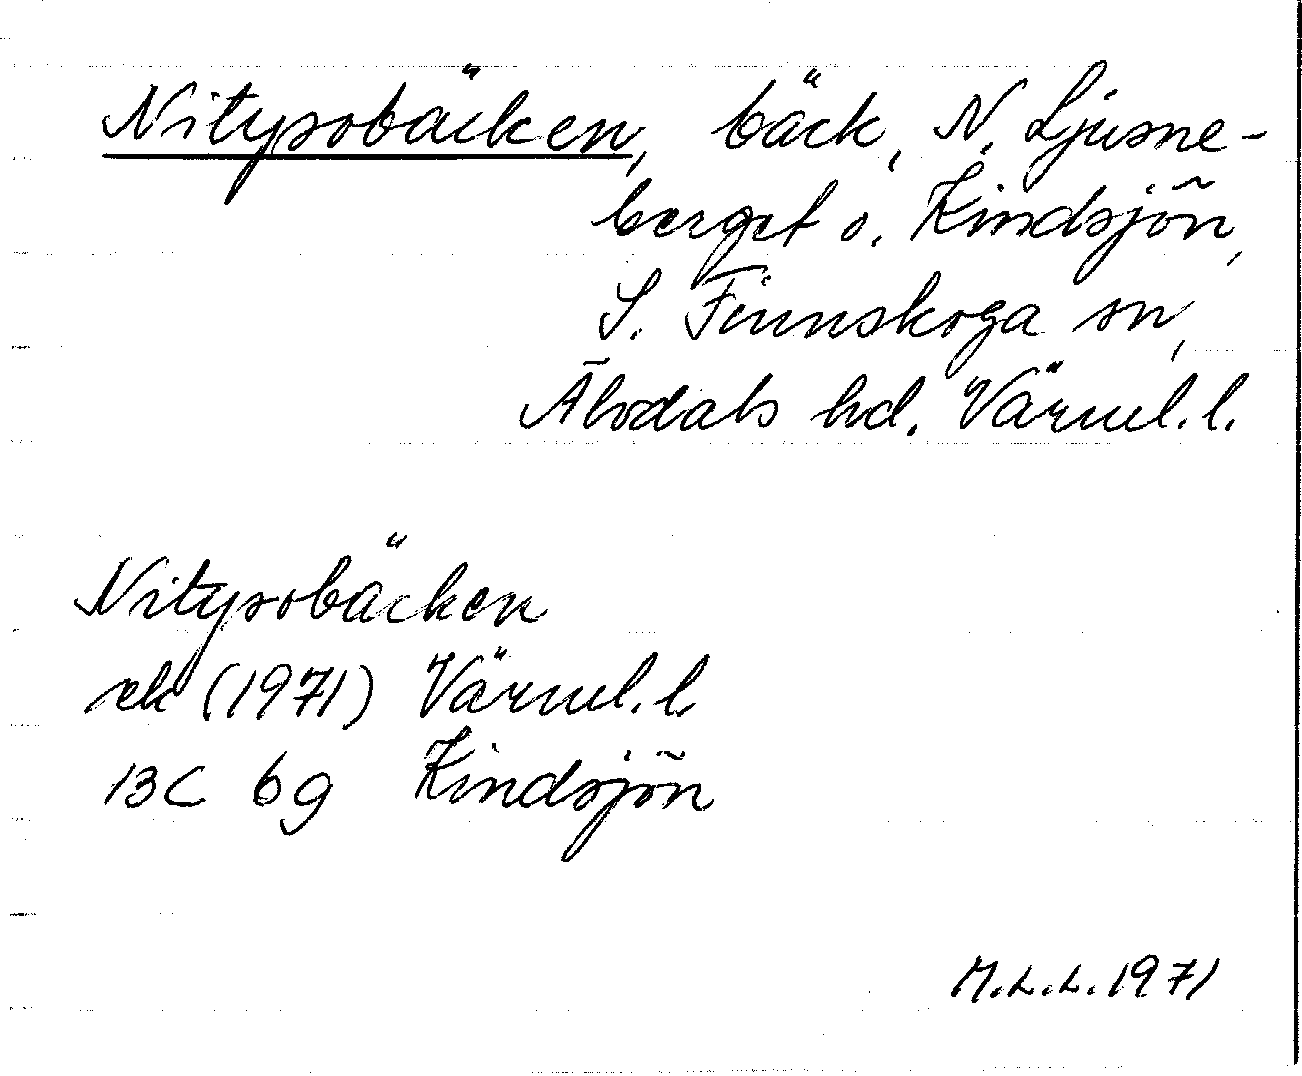 Nitysobäcken, bäck, N. Ljusne-
berget o. Kindsjön,
S. Finnskoga sn,
Älvdals hd. Värml. l.
Nitysobäcken
ek (1971) Värml. l.
13C 6g Kindsjön
M.L.L. 1971